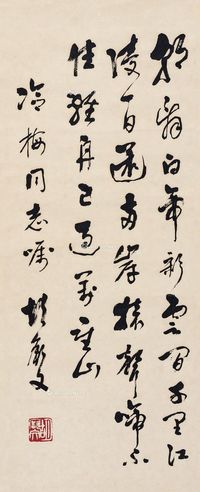 朝辭白帝彩雲間千里江
陵一日還兩岸猿聲啼不
住輕舟已過萬重山
冷梅同志嘱